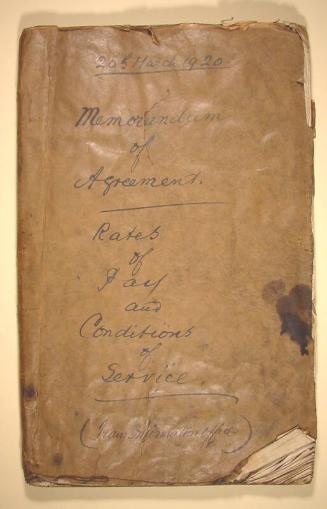 20th March 1920.
Memorandum
of
Agreement.
Rates
of
Pay
and
Conditions
of
Service.